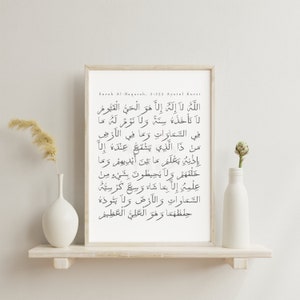 Surah Al-Baqarah, 2:255 Ayatul Kursi
اللَّهُ لَا إِلَٰهَ إِلَّا هُوَ الْحَيُّ الْقَيُّومُ
لَا تَأْخُذُهُ سِنَةٌ وَلَا نَوْمٌ لَهُ مَا
فِي السَّمَاوَاتِ وَمَا فِي الْأَرْضِ
مَنْ ذَا الَّذِي يَشْفَعُ عِنْدَهُ إِلَّا
بِإِذْنِهِ يَعْلَمُ مَا بَيْنَ أَيْدِيهِمْ وَمَا
خَلْفَهُمْ وَلَا يُحِيطُونَ بِشَيْءٍ مِنْ
عِلْمِهِ إِلَّا بِمَا شَاءَ وَسِعَ كُرْسِيُّهُ
السَّمَاوَاتِ وَالْأَرْضَ وَلَا يَئُودُهُ
حِفْظُهُمَا وَهُوَ الْعَلِيُّ الْعَظِيمُ